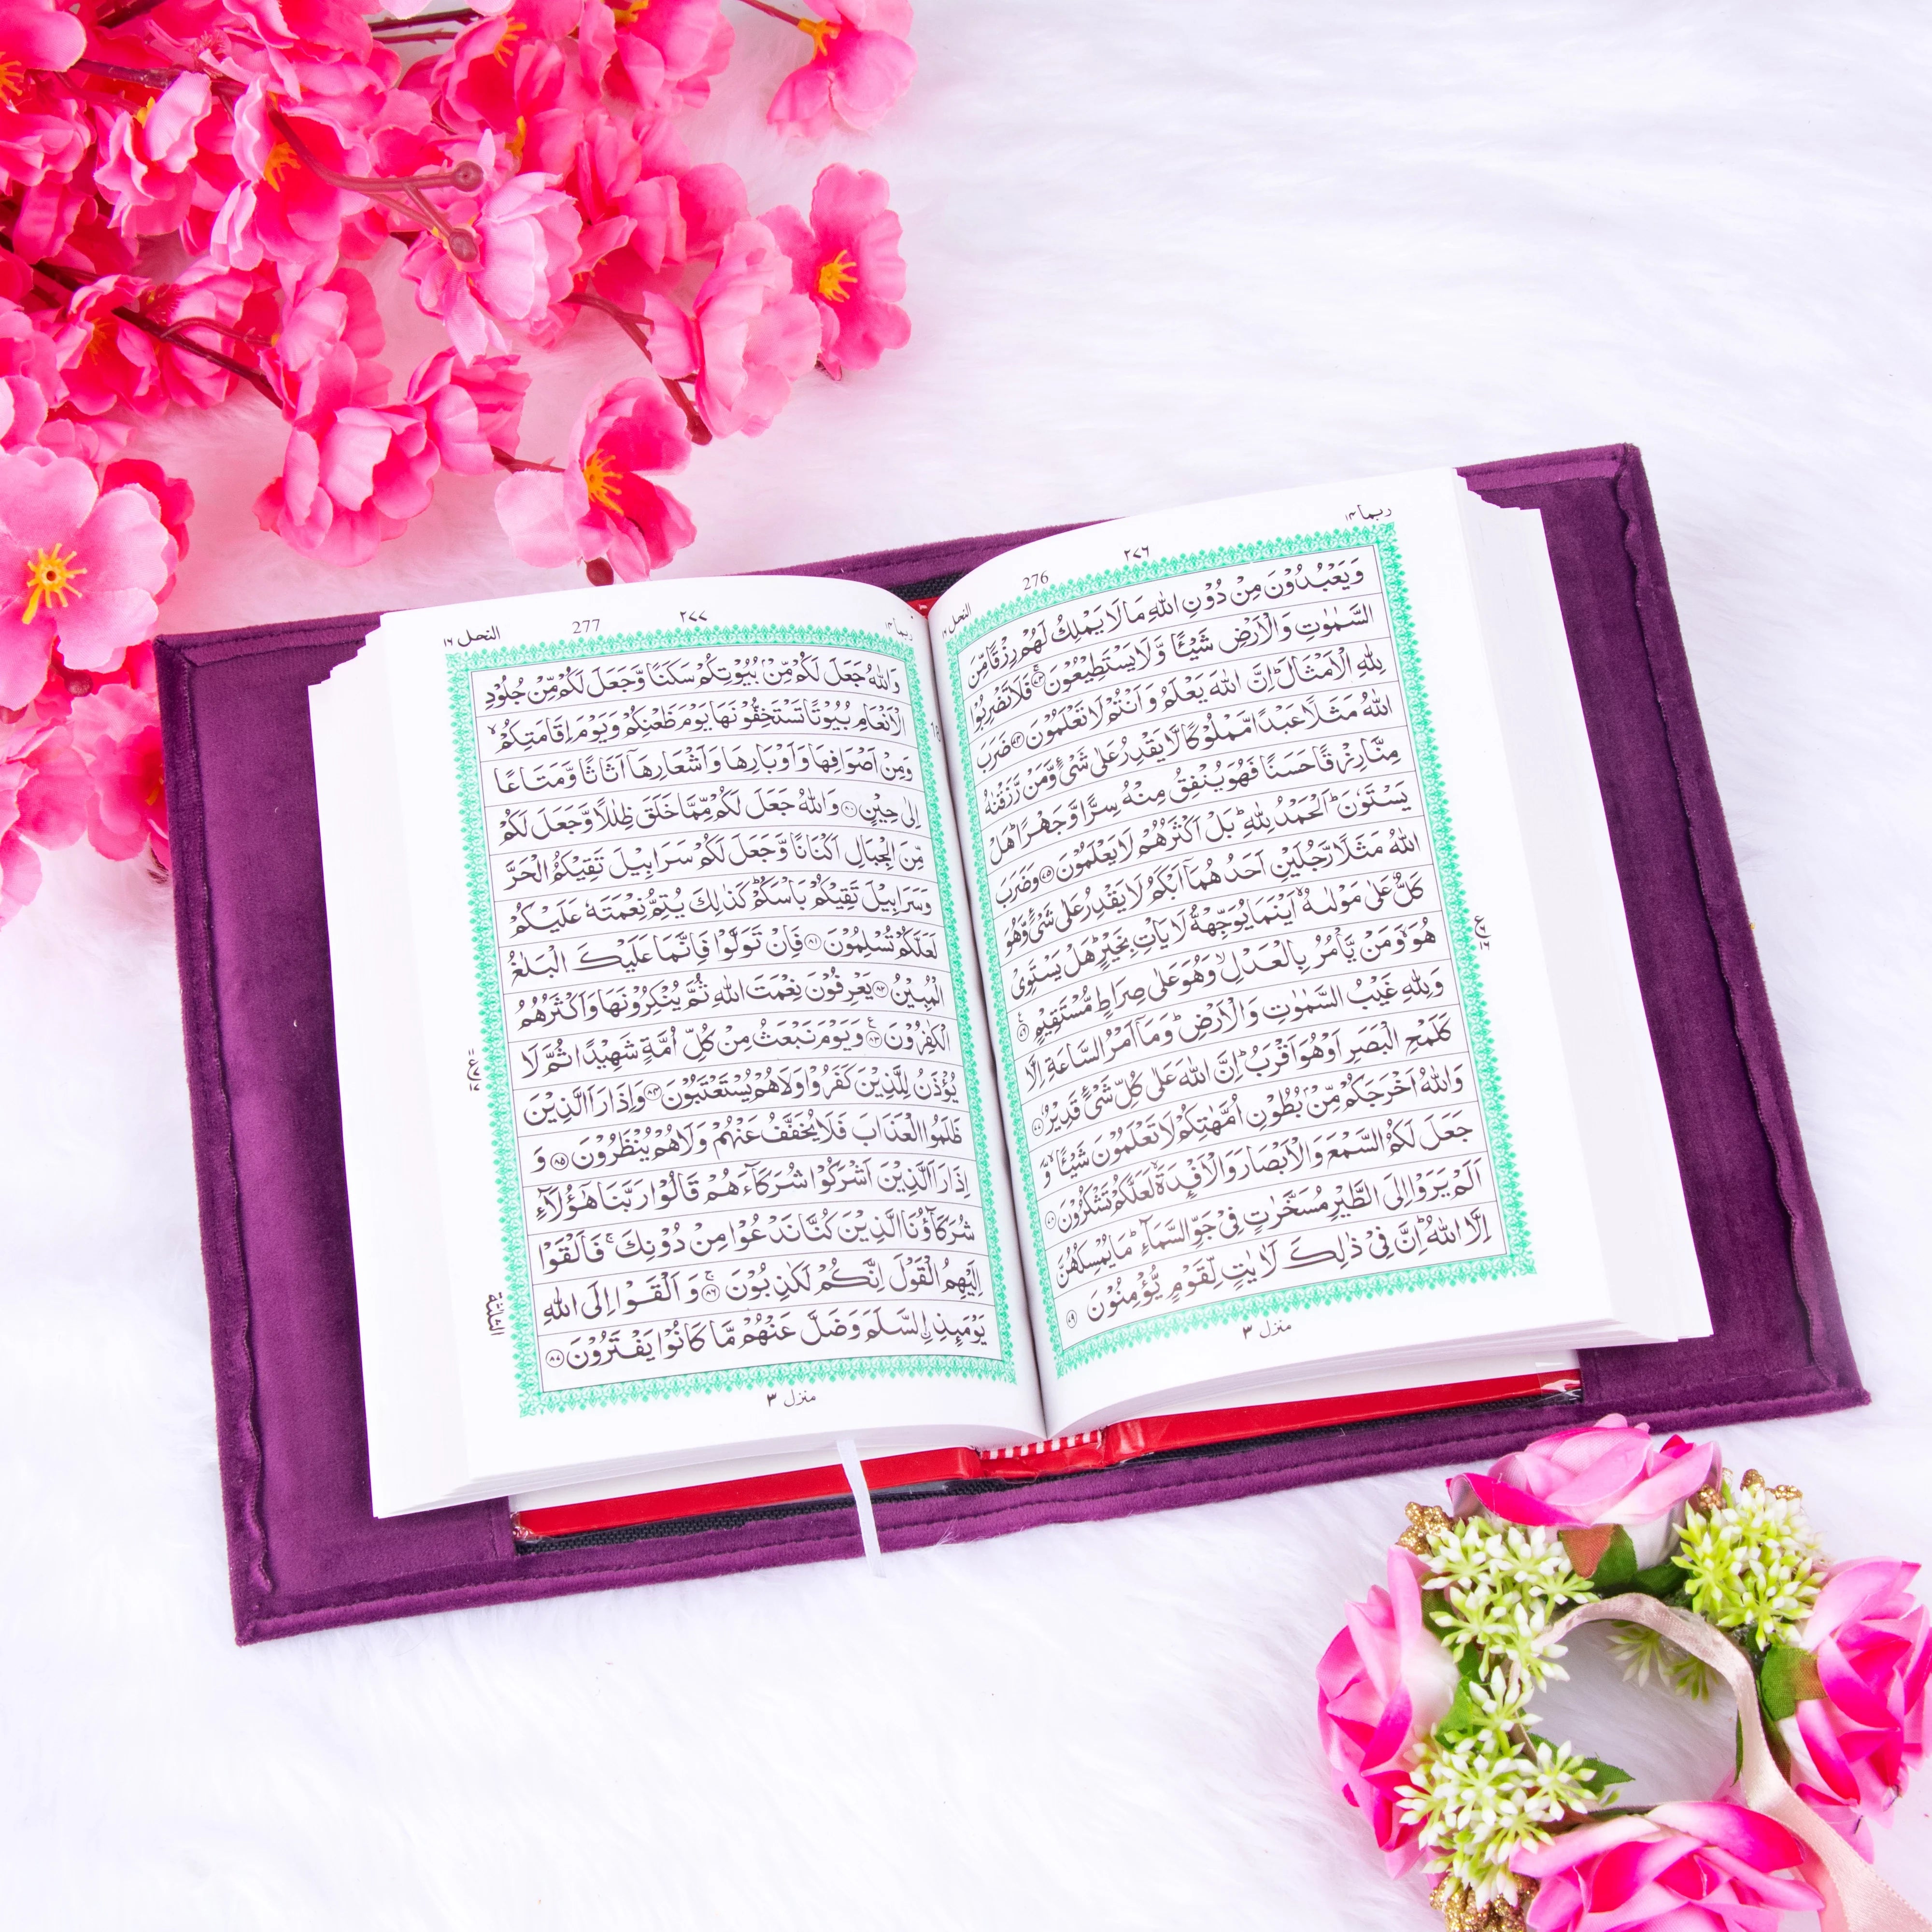 ربما ١٤
٢٧٦
276
النحل ١٦
وَيَعْبُدُوْنَ مِنْ دُوْنِ اللّٰهِ مَا لَا يَمْلِكُ لَهُمْ رِزْقًا مِّنَ
السَّمٰوٰتِ وَالْاَرْضِ شَيْـًٔا وَّلَا يَسْتَطِيْعُوْنَ ۚ‏﴿۷۳﴾ فَلَا تَضْرِبُوْا
لِلّٰهِ الْاَمْثَالَ ؕ اِنَّ اللّٰهَ يَعْلَمُ وَاَنْتُمْ لَا تَعْلَمُوْنَ ﴿۷۴﴾ ضَرَبَ
اللّٰهُ مَثَلًا عَبْدًا مَّمْلُوْكًا لَّا يَقْدِرُ عَلٰى شَىْءٍ وَّمَنْ رَّزَقْنٰهُ
مِنَّا رِزْقًا حَسَنًا فَهُوَ يُنْفِقُ مِنْهُ سِرًّا وَّجَهْرًا ؕ هَلْ
يَسْتَوٗنَ ؕ اَلْحَمْدُ لِلّٰهِ ؕ بَلْ اَكْثَرُهُمْ لَا يَعْلَمُوْنَ ﴿۷۵﴾ وَضَرَبَ
اللّٰهُ مَثَلًا رَّجُلَيْنِ اَحَدُهُمَاۤ اَبْكَمُ لَا يَقْدِرُ عَلٰى شَىْءٍ وَّهُوَ
كَلٌّ عَلٰى مَوْلٰىهُ ۙ اَيْنَمَا يُوَجِّهْهُّ لَا يَاْتِ بِخَيْرٍ ؕ هَلْ يَسْتَوِىْ
هُوَ ۙ وَمَنْ يَّاْمُرُ بِالْعَدْلِ ۙ وَهُوَ عَلٰى صِرَاطٍ مُّسْتَقِيْمٍ ﴿۷۶﴾
وَلِلّٰهِ غَيْبُ السَّمٰوٰتِ وَالْاَرْضِ ؕ وَمَاۤ اَمْرُ السَّاعَةِ اِلَّا
كَلَمْحِ الْبَصَرِ اَوْ هُوَ اَقْرَبُ ؕ اِنَّ اللّٰهَ عَلٰى كُلِّ شَىْءٍ قَدِيْرٌ ﴿۷۷﴾
وَاللّٰهُ اَخْرَجَكُمْ مِّنْۢ بُطُوْنِ اُمَّهٰتِكُمْ لَا تَعْلَمُوْنَ شَيْـًٔا ۙ وَّ
جَعَلَ لَكُمُ السَّمْعَ وَالْاَبْصَارَ وَالْاَفْـِٕدَةَ ۙ لَعَلَّكُمْ تَشْكُرُوْنَ ﴿۷۸﴾
اَلَمْ يَرَوْا اِلَى الطَّيْرِ مُسَخَّرٰتٍ فِىْ جَوِّ السَّمَآءِ ؕ مَا يُمْسِكُهُنَّ
اِلَّا اللّٰهُ ؕ اِنَّ فِىْ ذٰلِكَ لَاٰيٰتٍ لِّقَوْمٍ يُّؤْمِنُوْنَ ﴿۷۹﴾
منزل ٣
ربما ١٤
٢٧٧
277
النحل ١٦
وَاللّٰهُ جَعَلَ لَكُمْ مِّنْۢ بُيُوْتِكُمْ سَكَنًا وَّجَعَلَ لَكُمْ مِّنْ جُلُوْدِ
الْاَنْعَامِ بُيُوْتًا تَسْتَخِفُّوْنَهَا يَوْمَ ظَعْنِكُمْ وَيَوْمَ اِقَامَتِكُمْ ۙ
وَمِنْ اَصْوَافِهَا وَاَوْبَارِهَا وَاَشْعَارِهَاۤ اَثَاثًا وَّمَتَاعًا
اِلٰى حِيْنٍ ﴿۸۰﴾ وَاللّٰهُ جَعَلَ لَكُمْ مِّمَّا خَلَقَ ظِلٰلًا وَّجَعَلَ لَكُمْ
مِّنَ الْجِبَالِ اَكْنَانًا وَّجَعَلَ لَكُمْ سَرَابِيْلَ تَقِيْكُمُ الْحَرَّ
وَسَرَابِيْلَ تَقِيْكُمْ بَاْسَكُمْ ؕ كَذٰلِكَ يُتِمُّ نِعْمَتَهٗ عَلَيْكُمْ
لَعَلَّكُمْ تُسْلِمُوْنَ ﴿۸۱﴾ فَاِنْ تَوَلَّوْا فَاِنَّمَا عَلَيْكَ الْبَلٰغُ
الْمُبِيْنُ ﴿۸۲﴾ يَعْرِفُوْنَ نِعْمَتَ اللّٰهِ ثُمَّ يُنْكِرُوْنَهَا وَاَكْثَرُهُمُ
الْكٰفِرُوْنَ ﴿۸۳﴾ وَيَوْمَ نَبْعَثُ مِنْ كُلِّ اُمَّةٍ شَهِيْدًا ثُمَّ لَا
يُؤْذَنُ لِلَّذِيْنَ كَفَرُوْا وَلَا هُمْ يُسْتَعْتَبُوْنَ ﴿۸۴﴾ وَاِذَا رَاَ الَّذِيْنَ
ظَلَمُوا الْعَذَابَ فَلَا يُخَفَّفُ عَنْهُمْ وَلَا هُمْ يُنْظَرُوْنَ ﴿۸۵﴾ وَ
اِذَا رَاَ الَّذِيْنَ اَشْرَكُوْا شُرَكَآءَهُمْ قَالُوْا رَبَّنَا هٰٓؤُلَآءِ
شُرَكَآؤُنَا الَّذِيْنَ كُنَّا نَدْعُوْا مِنْ دُوْنِكَ ۚ فَاَلْقَوْا
اِلَيْهِمُ الْقَوْلَ اِنَّكُمْ لَكٰذِبُوْنَ ۚ﴿۸۶﴾ وَاَلْقَوْا اِلَى اللّٰهِ
يَوْمَىِٕذِ اِۨلسَّلَمَ وَضَلَّ عَنْهُمْ مَّا كَانُوْا يَفْتَرُوْنَ ﴿۸۷﴾
الثلثة
منزل ٣